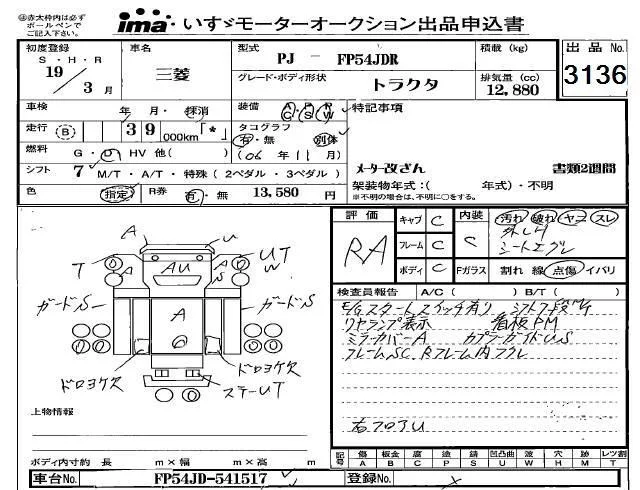 ㊟赤太枠内は必ず
ボールペンで
ご記入下さい。
ima いすゞモーターオークション出品申込書
初度登録 車名 型式 PJ - FP54JDR 積載 (kg) 出品 No.
S・H・R
19 / 3 月 三菱 グレード・ボディ形状 トラクタ 排気量 (cc) 12,880 3136
車検 年 月・抹消 装備 AC PS PW 特記事項
走行 (B) 39 000km 「*」 タコグラフ 有・無 別体
燃料 G・D HV 他( ) (06年11月) メーター改ざん 書類2週間
シフト 7 M/T・A/T・特殊 (2ペダル・3ペダル) 架装物年式:( 年式)・不明
※不明の場合は、不明に○をする。
色 (指定) R券 有・無 13,580 円
評価 RA キャブ C 内装 C 汚れ 破れ ヤニ スレ
フレーム C シートエグレ
ボディ C Fガラス 割れ 線 点傷 イバリ
検査員報告 A/C ( ) B/T ( )
E/Gスタートスイッチ有り シフト7段M/T
リヤランプ表示 看板PM
ミラーカバーA カプラーガイドUS
フレームSC. Rフレーム内フクレ
右フロアU
A U
T A AU A S UT
W
ガードS A ガードS
6
ドロヨケ欠 ドロヨケ欠
ステーUT
上物情報
ボディ内寸約 長 m×幅 m×高 m
記号 傷 板金 腐 塗 錆 凹凸曲 波 穴 跡 レツ割
A B C P S U W H M T
車台No. FP54JD-541517 登録No.